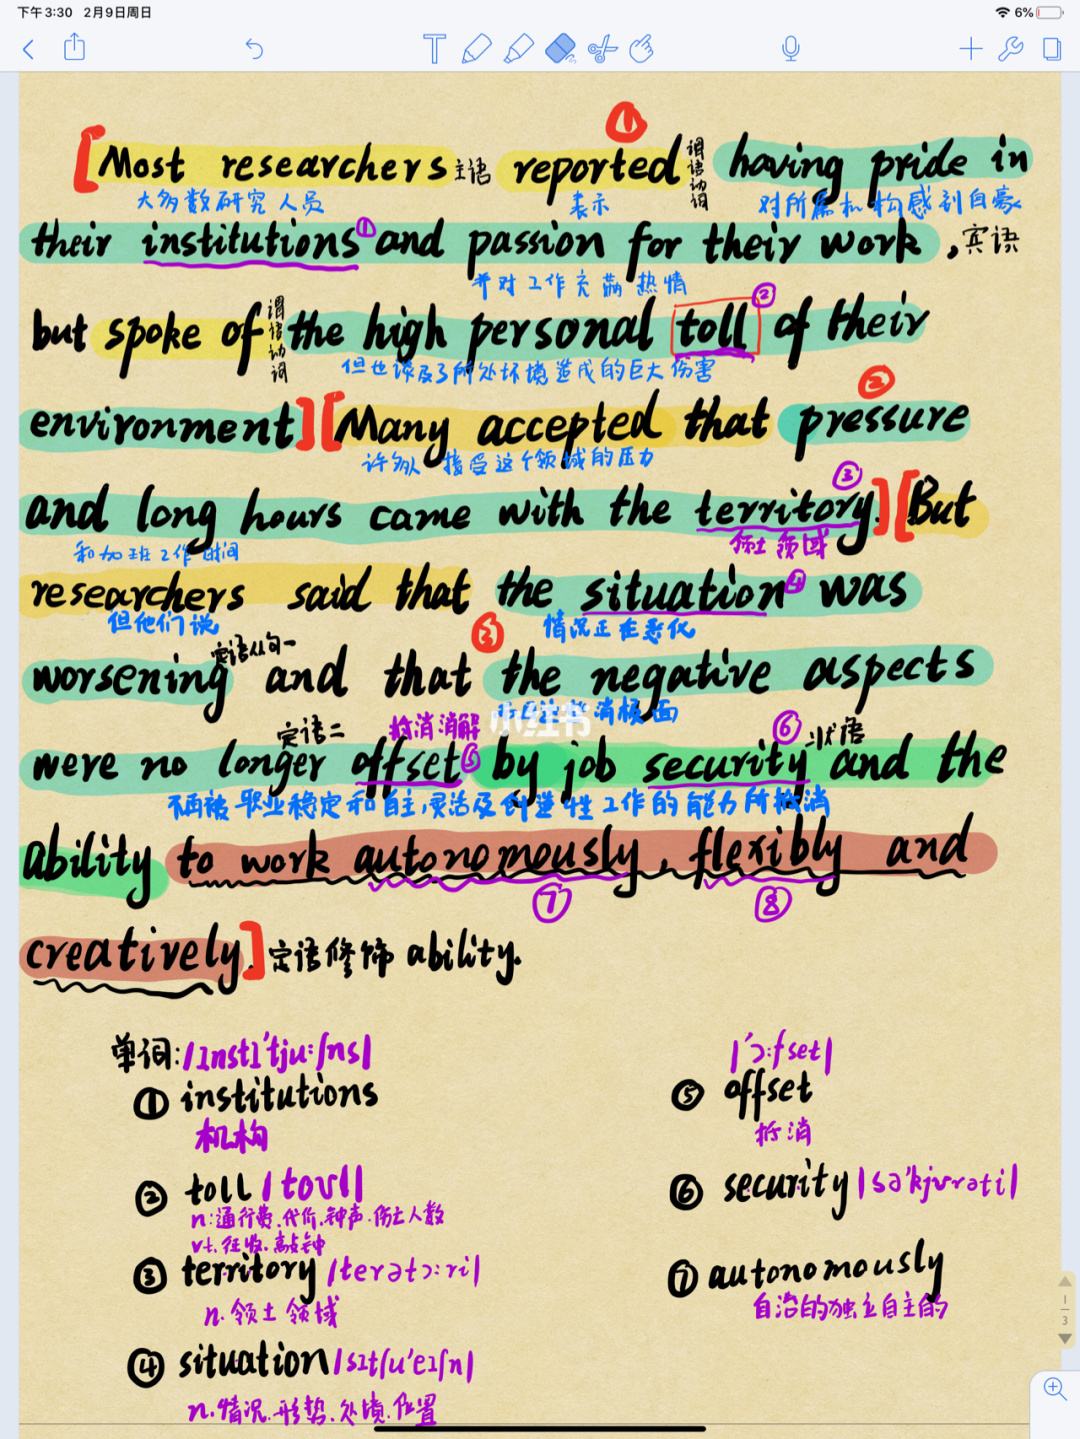 下午3:30 2月9日周日 6%
①
[Most researchers 主语 reported 谓语动词 having pride in
大多数研究人员 表示 对所属机构感到自豪
their institutions① and passion for their work, 宾语
并对工作充满热情
but spoke of 谓语动词 the high personal toll② of their
但也谈及了所处环境造成的巨大伤害
②
environment][Many accepted that pressure
许多人 接受这个领域的压力
and long hours came with the territory③.][But
和加班工作时间 领土 领域
researchers said that the situation④ was
但他们说 情况正在恶化
③
定语从句一
worsening and that the negative aspects
消极面
小红书
定语二 抵消消解 ⑥ 状语
were no longer offset⑤ by job security and the
不再被职业稳定和自主,灵活及创造性工作的能力所抵消
ability to work autonomously, flexibly and
⑦ ⑧
creatively.] 定语修饰 ability.
单词: /ɪnstɪ'tju:ʃns/
① institutions
机构
② toll /toʊl/
n:通行费.代价.钟声.伤亡人数
vt.征收.敲钟
③ territory /terətɔ:ri/
n.领土 领域
④ situation /sɪtʃu'eɪʃn/
n.情况.形势.处境.位置
/'ɔ:fset/
⑤ offset
抵消
⑥ security /sə'kjʊrəti/
⑦ autonomously
自治的独立自主的
1
3